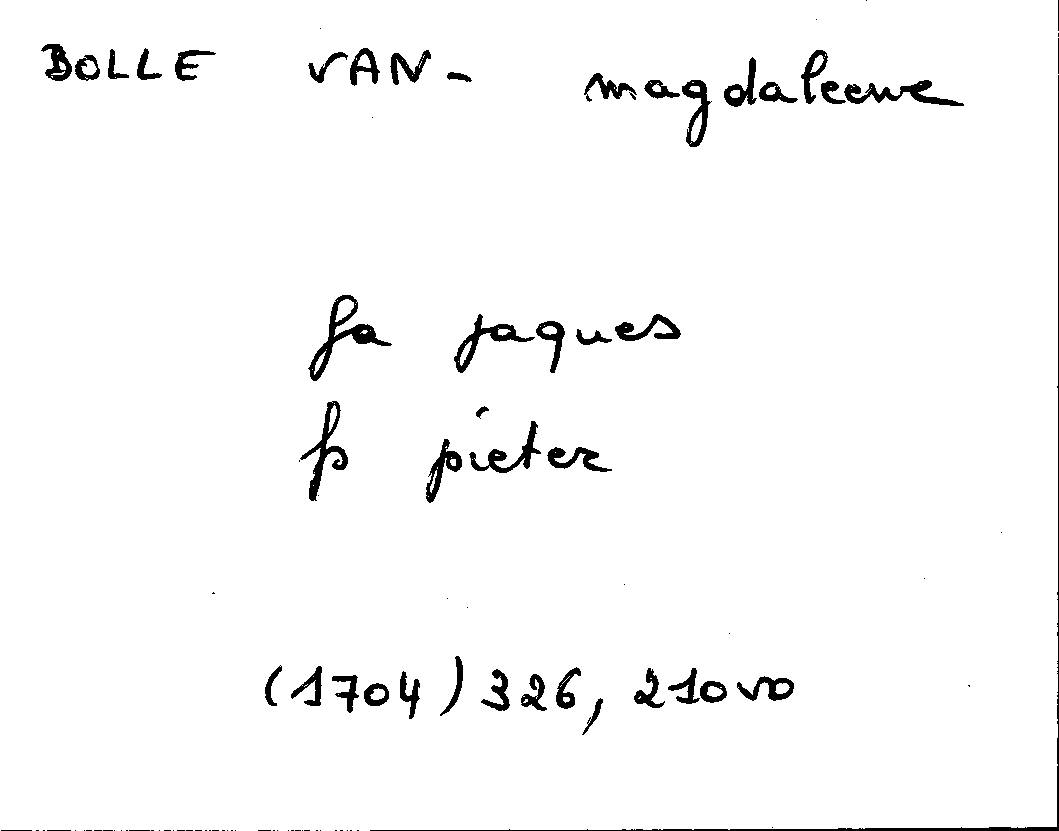 BOLLE VAN - magdaleene
fa jaques
fs pieter
(1704) 326, 210vo